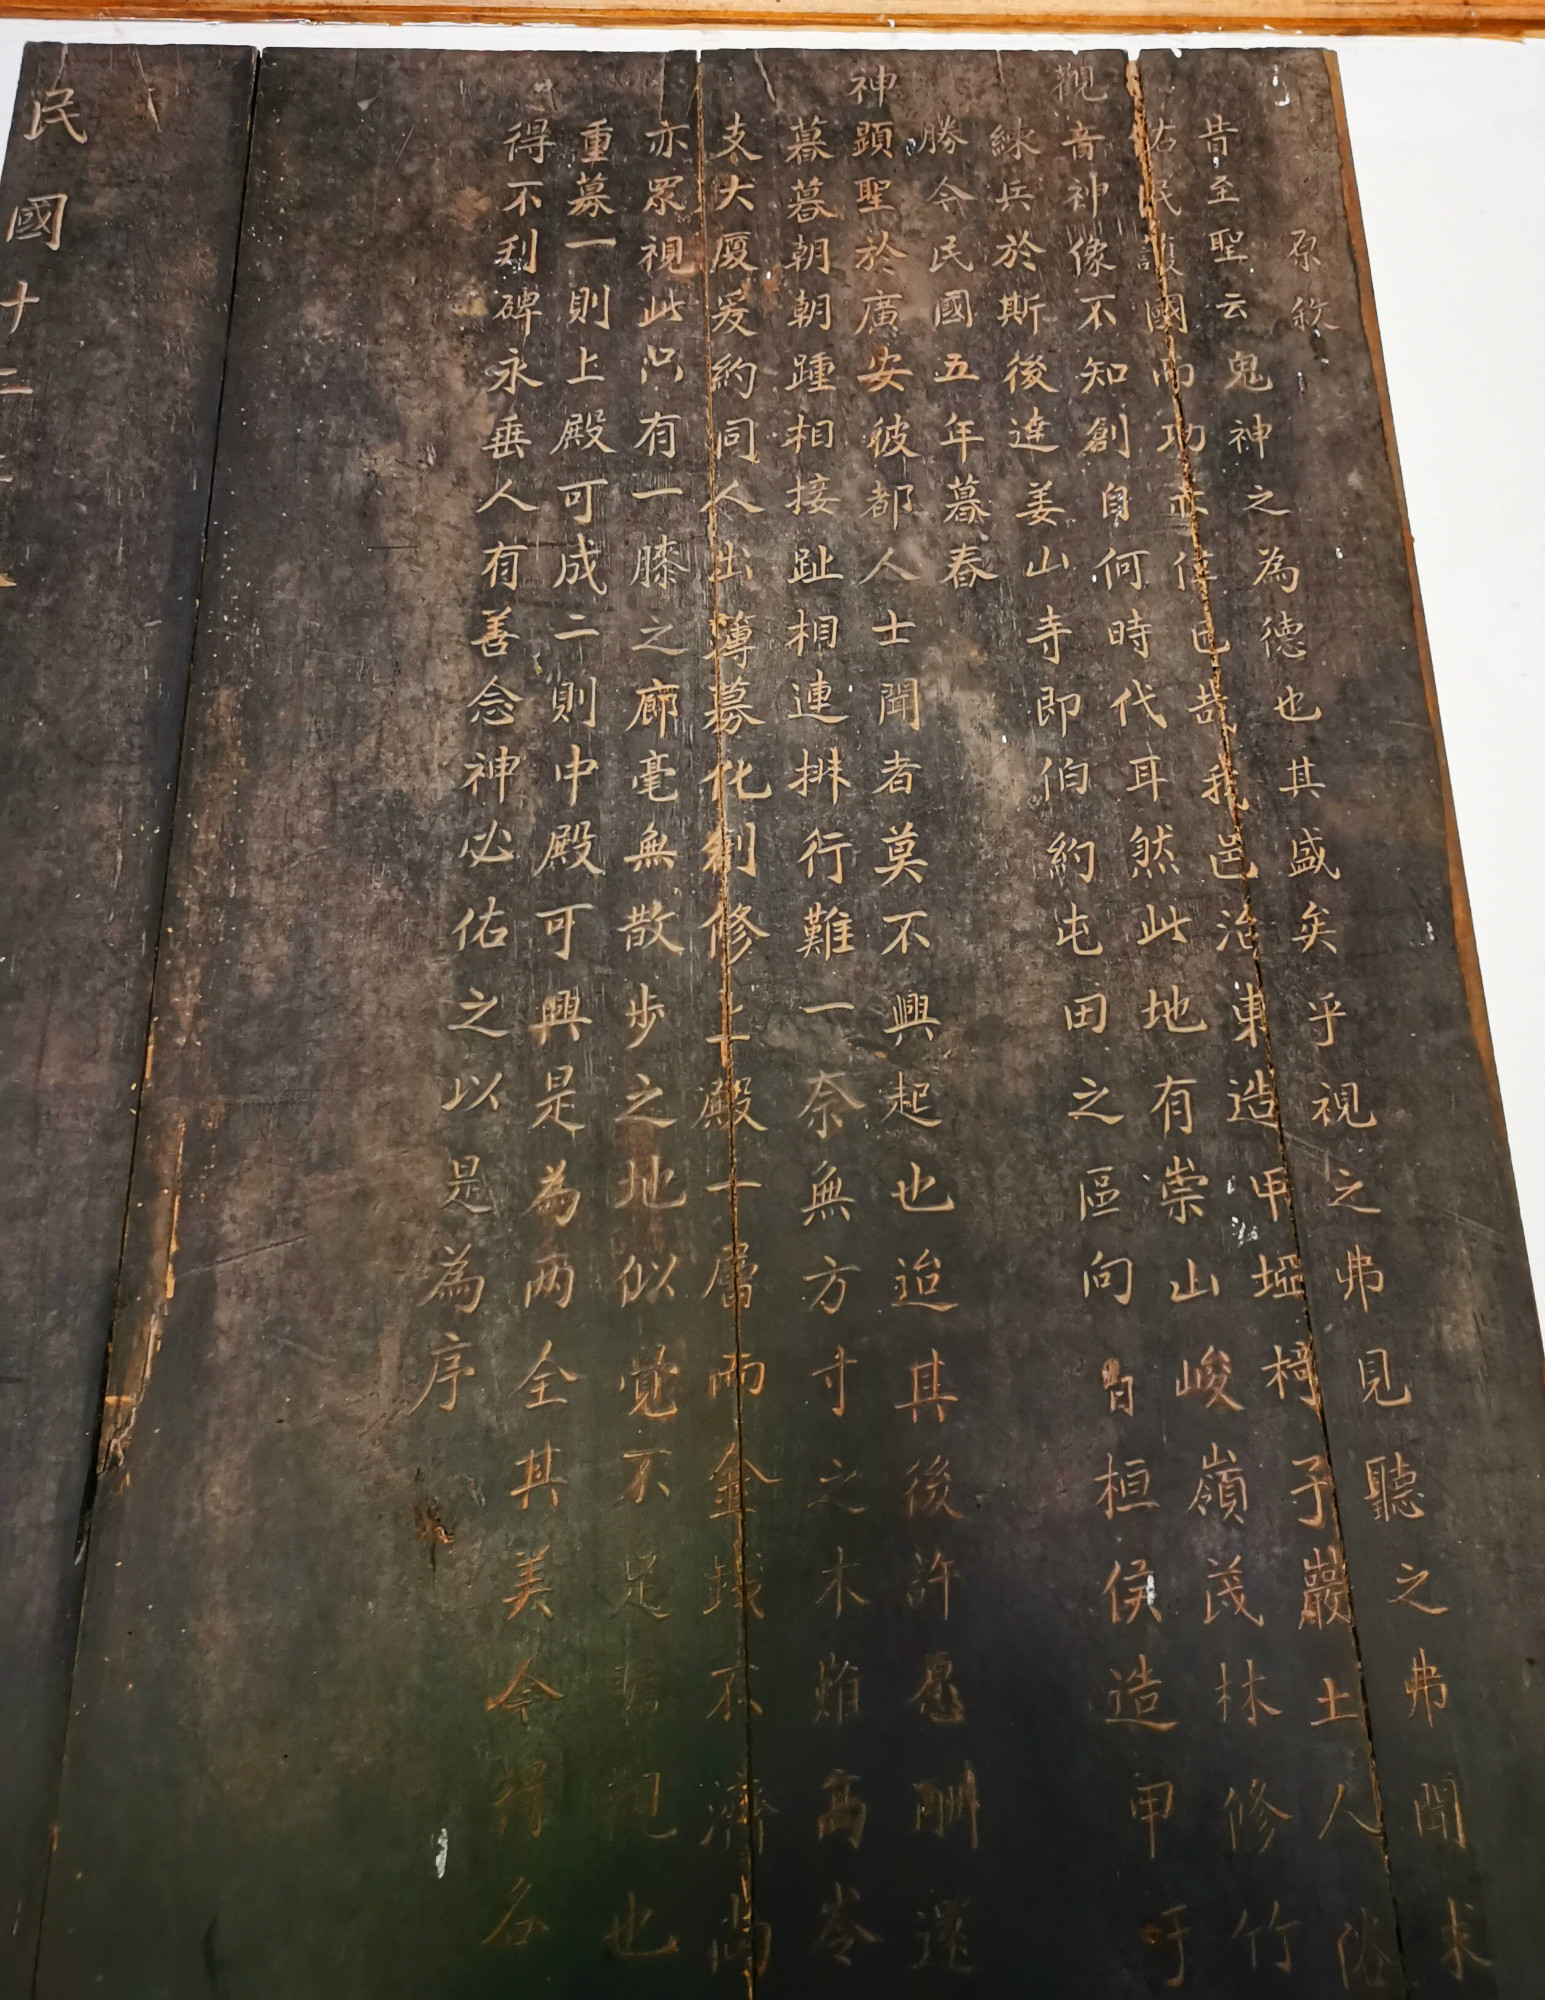 原敘
昔至聖云鬼神之為德也其盛矣乎視之弗見聽之弗聞求
佑民護國而功亦偉也哉我邑治東造甲埡椅子巖土人俗
觀音神像不知創自何時代耳然此地有崇山峻嶺茂林修竹
練兵於斯後達姜山寺即伯約屯田之區向昔桓侯造甲于
勝今民國五年暮春
神顯聖於廣安彼都人士聞者莫不興起也迨其後許愿酬還
暮暮朝朝踵相接趾相連排行難一奈無方寸之木焉高岑
支大廈爰約同人出薄募化創修上殿一層而金錢不濟尚
亦眾視此只有一膝之廊毫無散步之地似覺不足觀也
重募一則上殿可成二則中殿可興是為两全其美今將名
得不利碑永垂人有善念神必佑之以是為序
民國十二